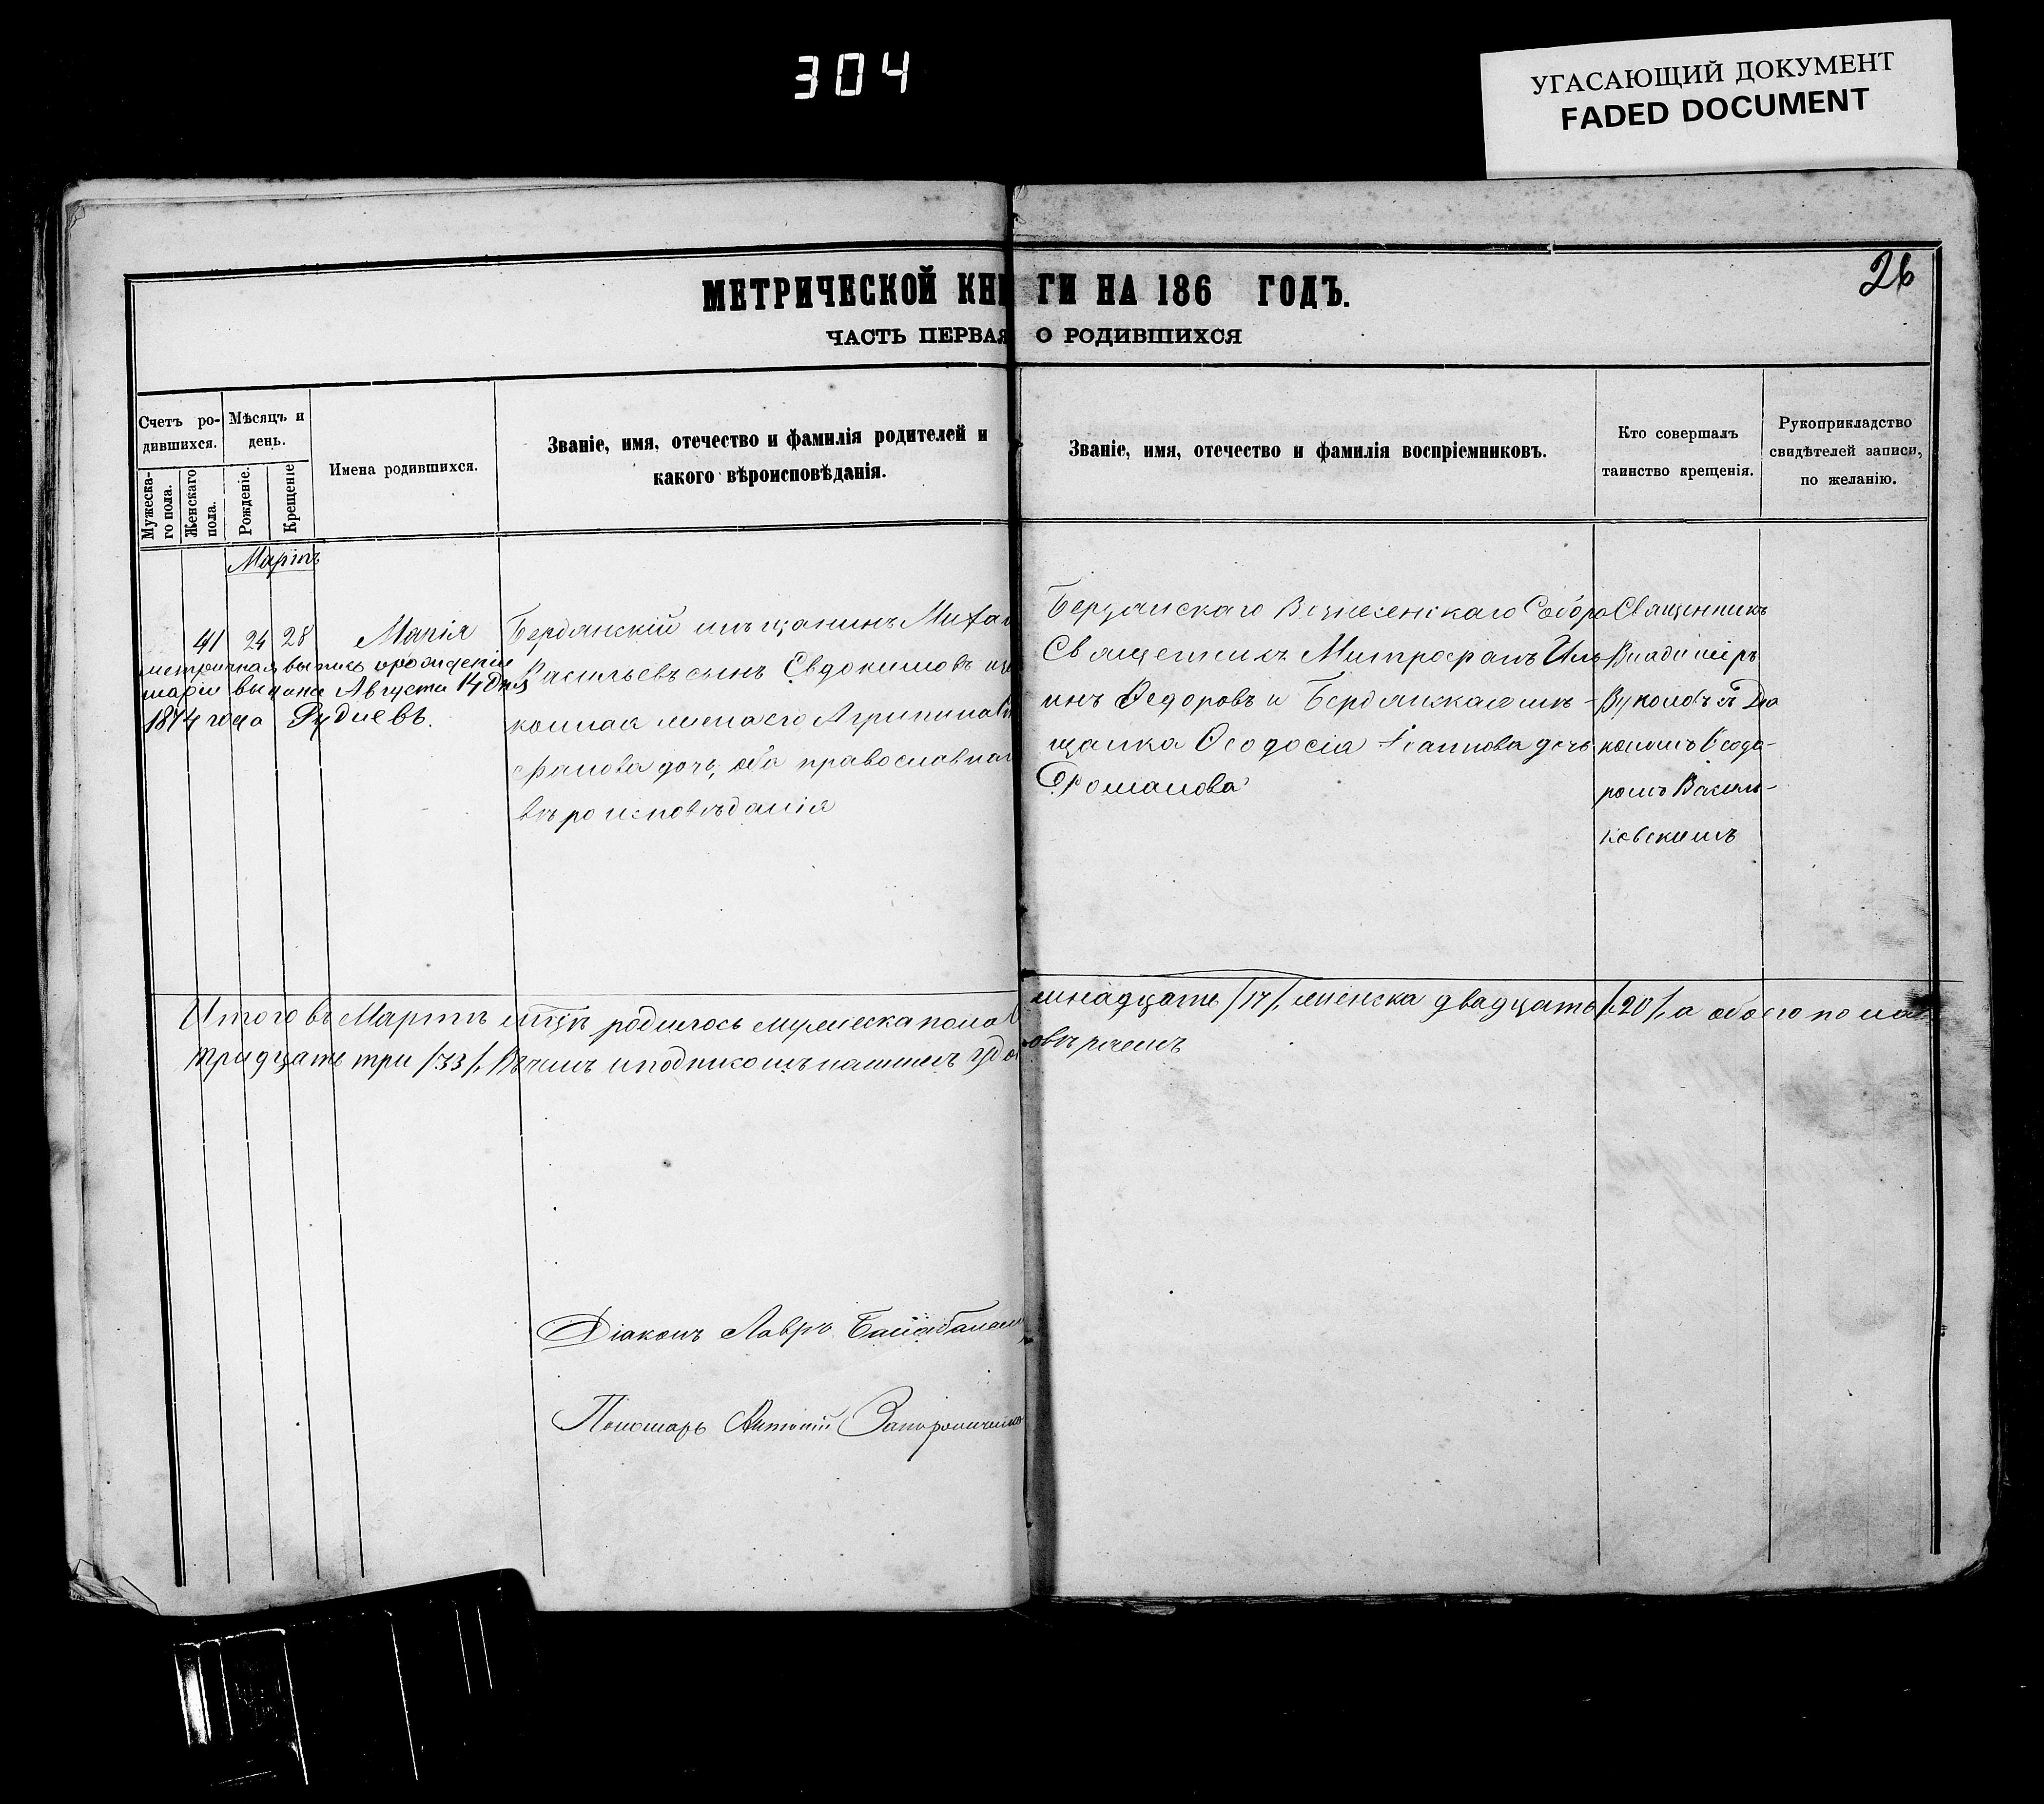 304
УГАСАЮЩИЙ ДОКУМЕНТ
FADED DOCUMENT
26
МЕТРИЧЕСКОЙ КНИГИ НА 186 ГОДЪ.
ЧАСТЬ ПЕРВАЯ О РОДИВШИХСЯ
Счетъ ро-
дившихся.
Мужеска-
го пола.
Женскаго
пола.
Мѣсяцъ и
день.
Рожденіе.
Крещеніе
Имена родившихся.
Званіе, имя, отечество и фамилія родителей и
какого вѣроисповѣданія.
Званіе, имя, отечество и фамилія воспріемниковъ.
Кто совершалъ
таинство крещенія.
Рукоприкладство
свидѣтелей записи,
по желанію.
Мартъ
41 24 28 Марія
метричная выпись о рожденіи
Маріи выдана Августа 14 дня
1874 года Рудневъ.
Бердянскій мѣщанинъ Михаи
Васильевъ сынъ Евдокимовъ и
конная жена его Агрипина
фанова дочь, оба православнаго
вѣроисповѣданія
Бердянскаго Вознесенскаго Собора
Священникъ Митрофанъ Иль
инъ Федоровъ и Бердянская мѣ-
щанка Ѳеодосія Іоаннова дочь
Романова
Священникъ
Владиміръ
Вуколовъ съ Діа
кономъ Ѳеодо-
ромъ Василь-
ковскимъ
Итого въ Мартѣ мцѣ родилось мужеска пола
мнадцать /13/, женска двадцать /20/, а обоего пола
тридцать три /33/, въ чемъ и подписомъ нашимъ удо
овѣряемъ
Діаконъ Лавръ Балабаненко
Пономарь Антоній Запорожченко